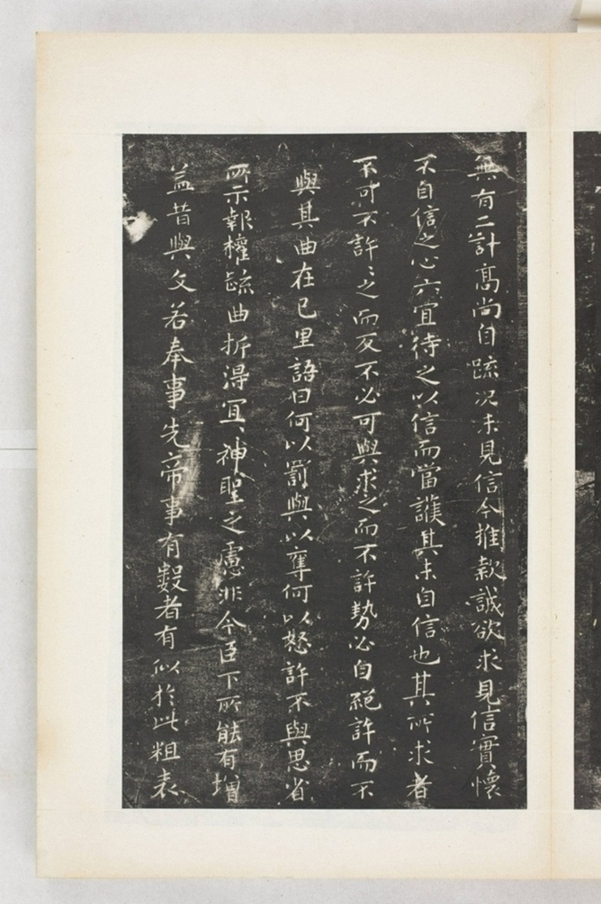 無有二計高尚自疏況未見信今推款誠欲求見信實懷
不自信之心亦宜待之以信而當護其未自信也其所求者
不可不許許之而反不必可與求之而不許勢必自絕許而不
與其曲在己里語曰何以罰與以奪何以怒許不與思省
所示報權疏曲折得宜神聖之慮非今臣下所能有增
益昔與文若奉事先帝事有數者有似於此粗表